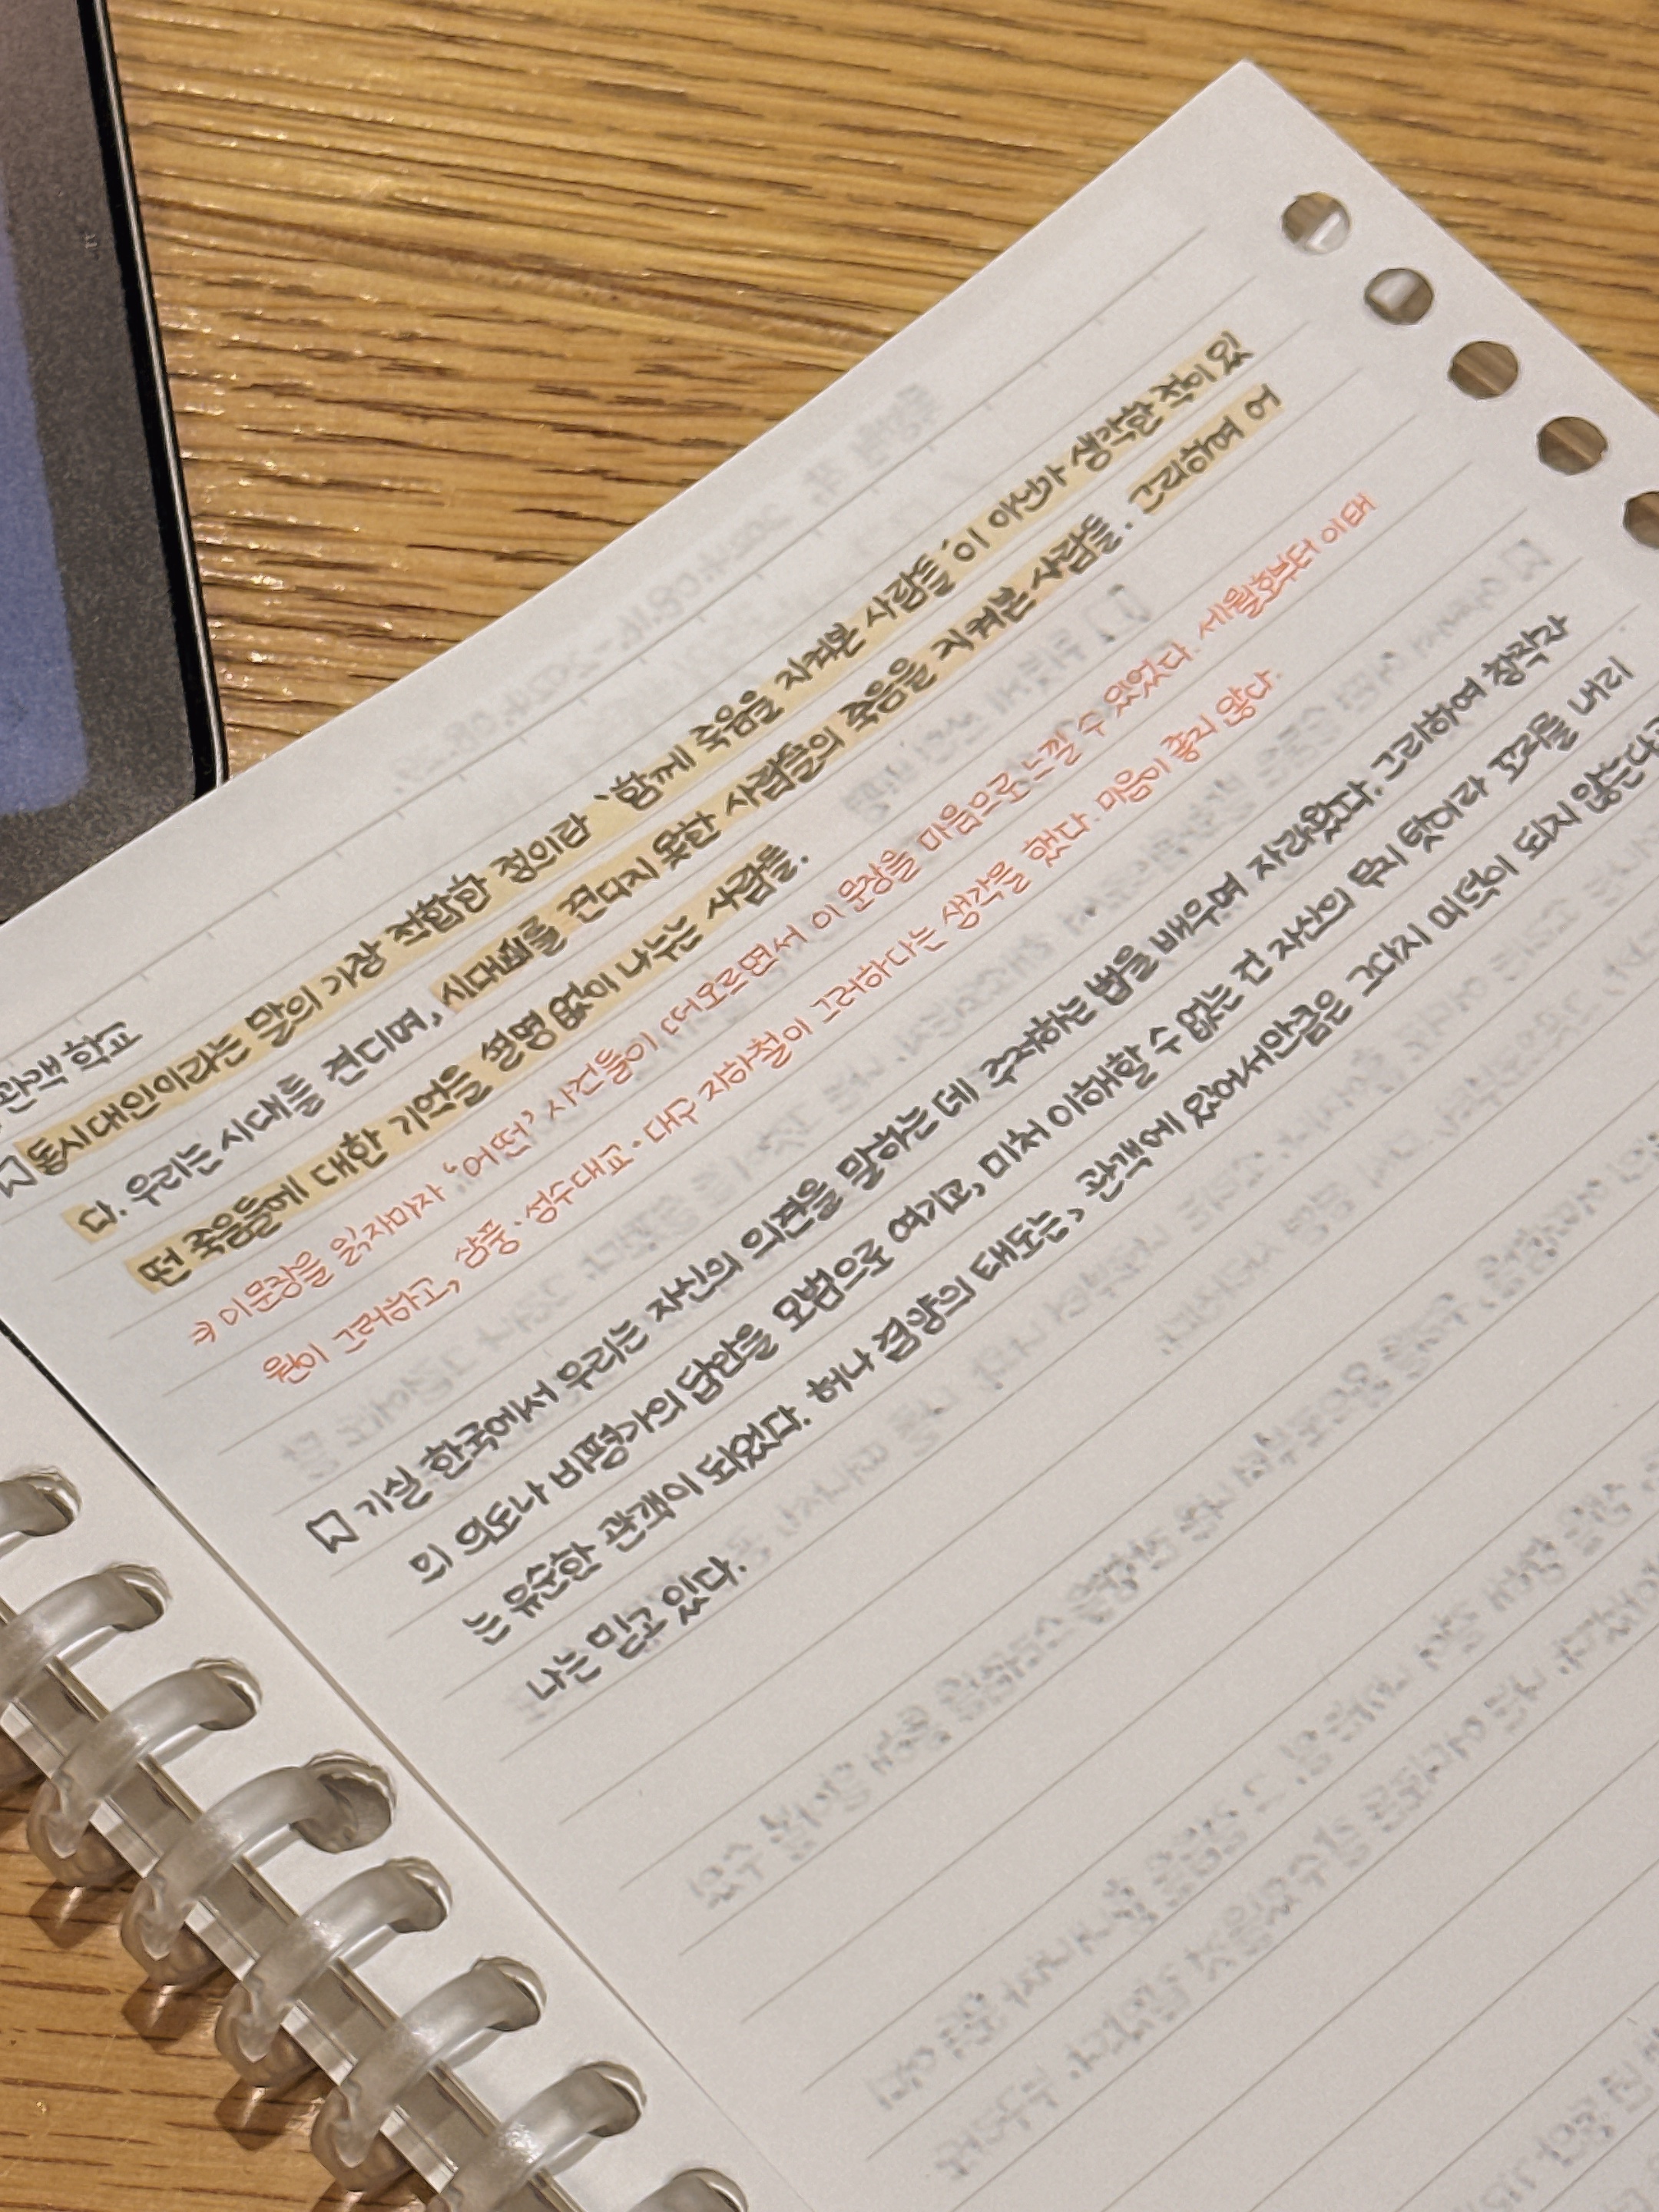 관객 학교
동시대인이라는 말의 가장 적합한 정의란 '함께 죽음을 지켜본 사람들'이 아닌가 생각한 적이 있
다. 우리는 시대를 견디며, 시대를 견디지 못한 사람들의 죽음을 지켜본 사람들. 그리하여 어
떤 죽음들에 대한 기억을 설명 없이 나누는 사람들.
* 이 문장을 읽자마자 '어떤' 사건들이 떠오르면서 이 문장을 마음으로 느낄 수 있었다. 세월호부터 이태
원이 그러하고, 삼풍·성수대교·대구 지하철이 그러하다는 생각을 했다. 마음이 좋지 않다.
기실 한국에서 우리는 자신의 의견을 말하는 데 주저하는 법을 배우며 자라왔다. 그리하여 창작자
의 의도나 비평가의 답안을 모범으로 여기고, 미처 이해할 수 없는 건 자신의 무지 탓이라 꼬리를 내리
는 유순한 관객이 되었다. 허나 겸양의 태도는, 관객에 있어서만큼은 그다지 미덕이 되지 않는다고
나는 믿고 있다.